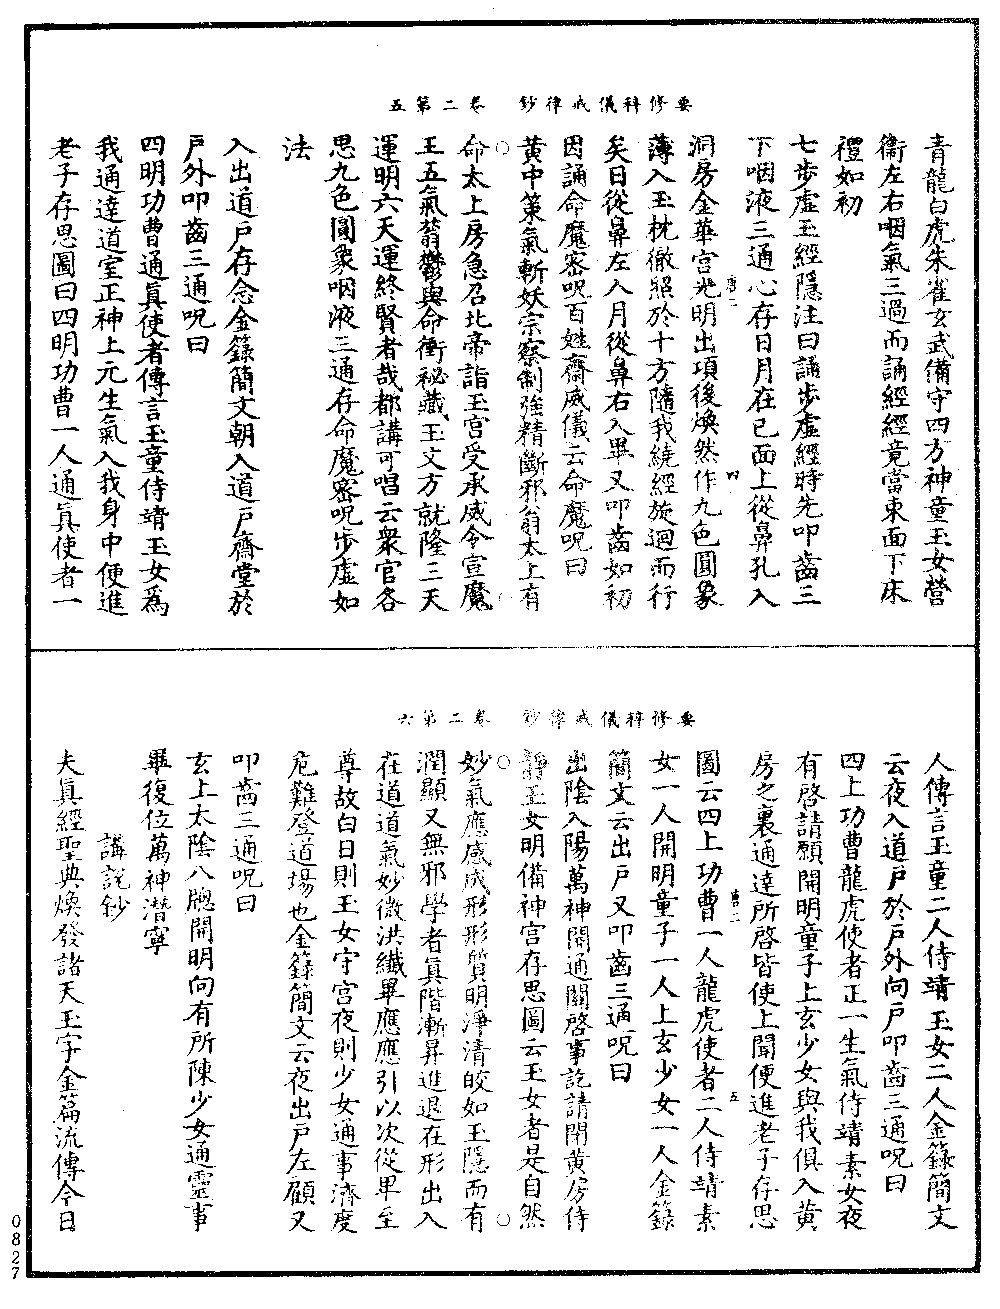 要修科儀戒律鈔　卷二第五
青龍白虎朱雀玄武備守四方神童玉女營
衞左右咽氣三過而誦經經竟當東面下床
禮如初
七步虛玉經隱注曰誦步虛經時先叩齒三
下咽液三通心存日月在已面上從鼻孔入
洞房金華宮光明出項後煥然作九色圓象
薄入玉枕徹照於十方隨我繞經旋迴而行
矣日從鼻左入月從鼻右入畢又叩齒如初
因誦命魔密呪百姓齋威儀云命魔呪曰
黃中策氣斬妖宗察制強精斷邪翁太上有
命太上房急召北帝詣玉宮受承威令宣魔
王五氣翁鬱與命衝祕藏玉文方就隆三天
運明六天運終賢者哉都講可唱云衆官各
思九色圓象咽液三通存命魔密呪步虛如
法
入出道戶存念金籙簡文朝入道戶齋堂於
戶外叩齒三通呪曰
四明功曹通眞使者傳言玉童侍靖玉女爲
我通達道室正神上元生氣入我身中便進
老子存思圖曰四明功曹一人通眞使者一
唐一
四
要修科儀戒律鈔　卷二第六
人傳言玉童二人侍靖玉女二人金籙簡文
云夜入道戶於戶外向戶叩齒三通呪曰
四上功曹龍虎使者正一生氣侍靖素女夜
有啓請願開明童子上玄少女與我俱入黃
房之裏通達所啓皆使上聞便進老子存思
圖云四上功曹一人龍虎使者二人侍靖素
女一人開明童子一人上玄少女一人金籙
簡文云出戶又叩齒三通呪曰
出陰入陽萬神開通關啓事訖請閉黃房侍
靜玉女明備神宮存思圖云玉女者是自然
妙氣應感成形形質明淨清皎如玉隱而有
潤顯又無邪學者眞階漸昇進退在形出入
在道道氣妙微洪纖畢應應引以次從卑至
尊故白日則玉女守宮夜則少女通事濟度
危難登道場也金籙簡文云夜出戶左顧又
叩齒三通呪曰
玄上太陰八牕開明向有所陳少女通靈事
畢復位萬神潛寧
講說鈔
夫眞經聖典煥發諸天玉字金篇流傳今日
唐二
五
0827